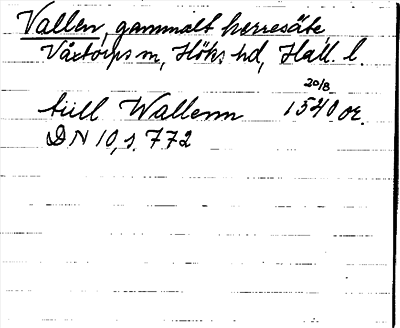 Vallen, gammalt herresäte,
Våxtorps sn, Höks hd, Hall. l.
20/8
till Wallenn 1540 or.
DN 10, s. 772